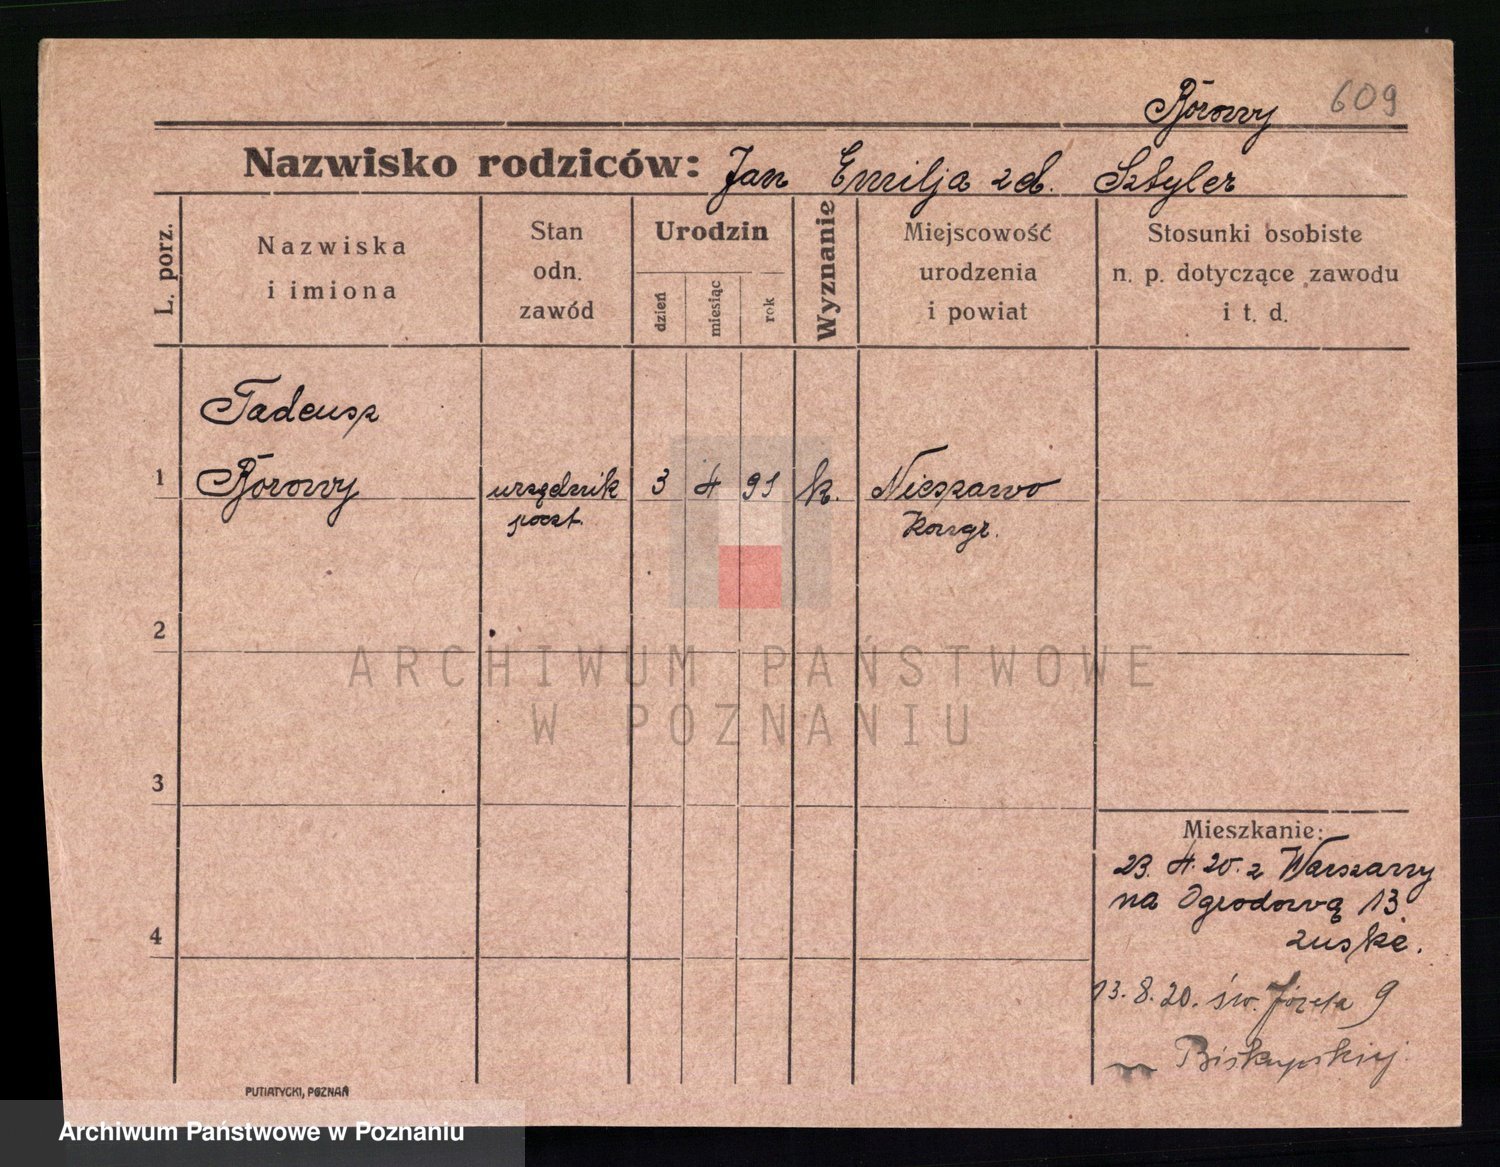 Borowy 609
Nazwisko rodziców: Jan Emilja zd. Sztyler
L. porz.
Nazwiska
i imiona
Stan
odn.
zawód
Urodzin
dzień
miesiąc
rok
Wyznanie
Miejscowość
urodzenia
i powiat
Stosunki osobiste
n. p. dotyczące zawodu
i t. d.
Tadeusz
1 Borowy urzędnik 3 4 91 k. Nieszawo
poczt. Kongr.
2
ARCHIWUM PAŃSTWOWE
W POZNANIU
3
Mieszkanie:
23. 4. 20. z Warszawy
na Ogrodową 13
4
13. 8. 20. św. Józefa 9
Biskupskiej
PUTIATYCKI, POZNAŃ
Archiwum Państwowe w Poznaniu